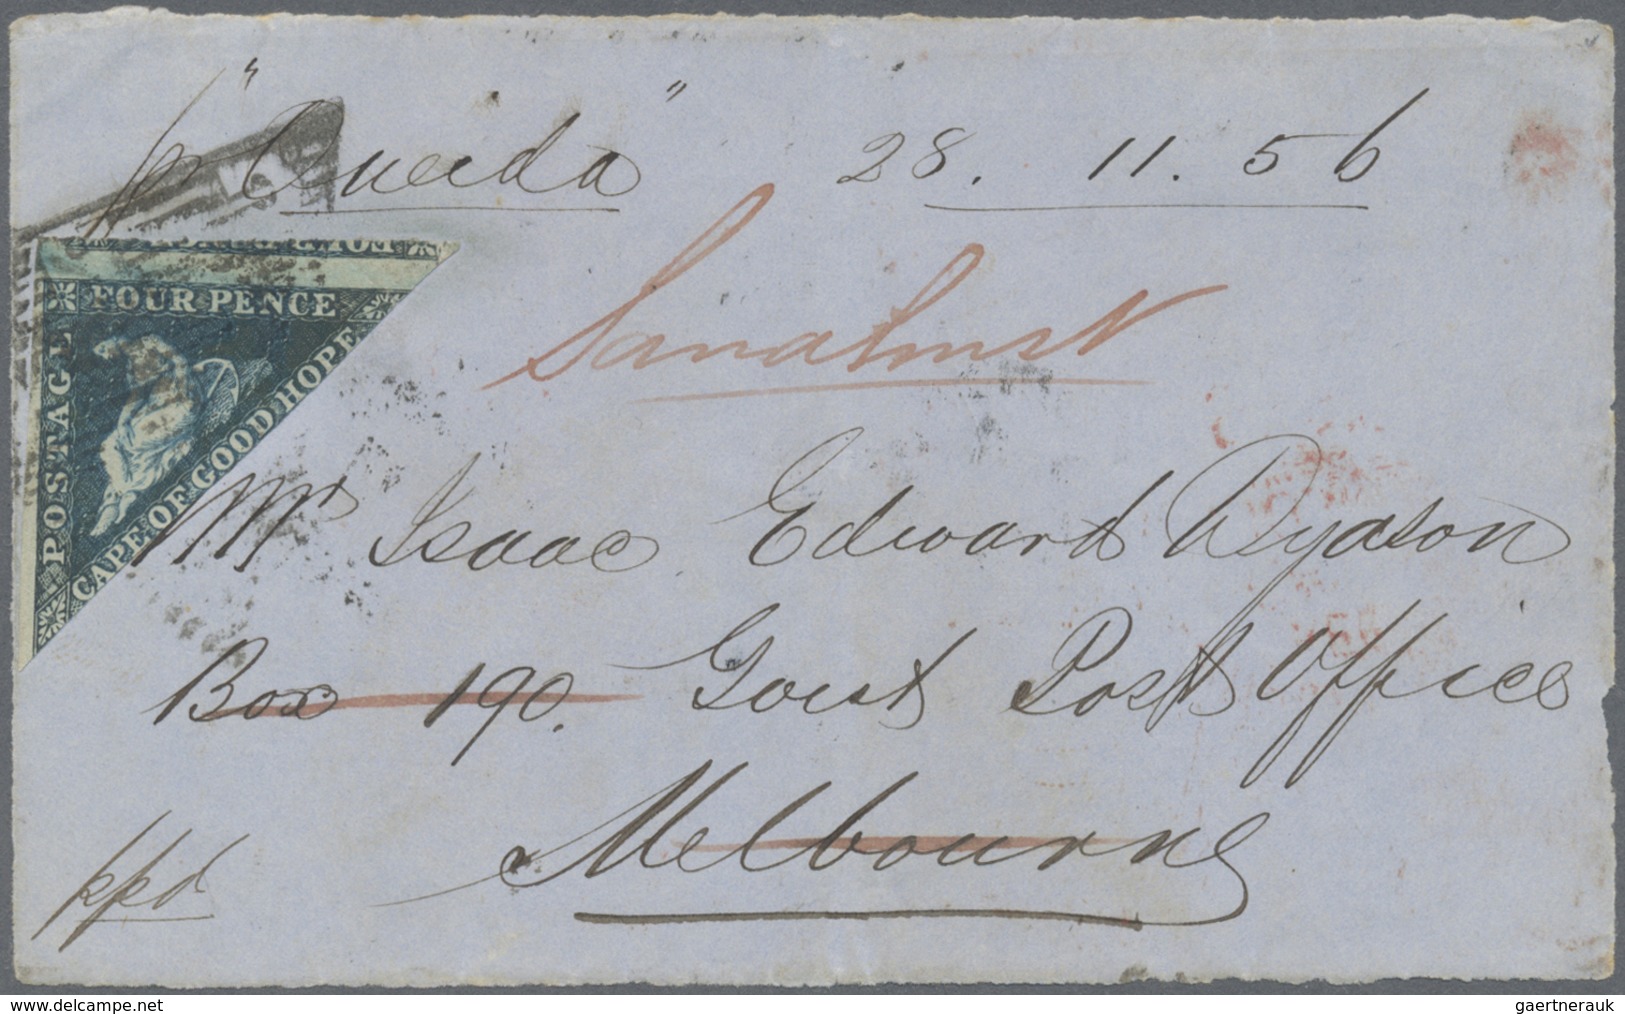 pr "Oneida" 28. 11. 56
FOUR PENCE
POSTAGE
CAPE OF GOOD HOPE
Sandhurst
Mr Isaac Edward Dyason
Box 190. Govt Post Office
Melbourne
ppd
delcampe.net
gaertnerauk